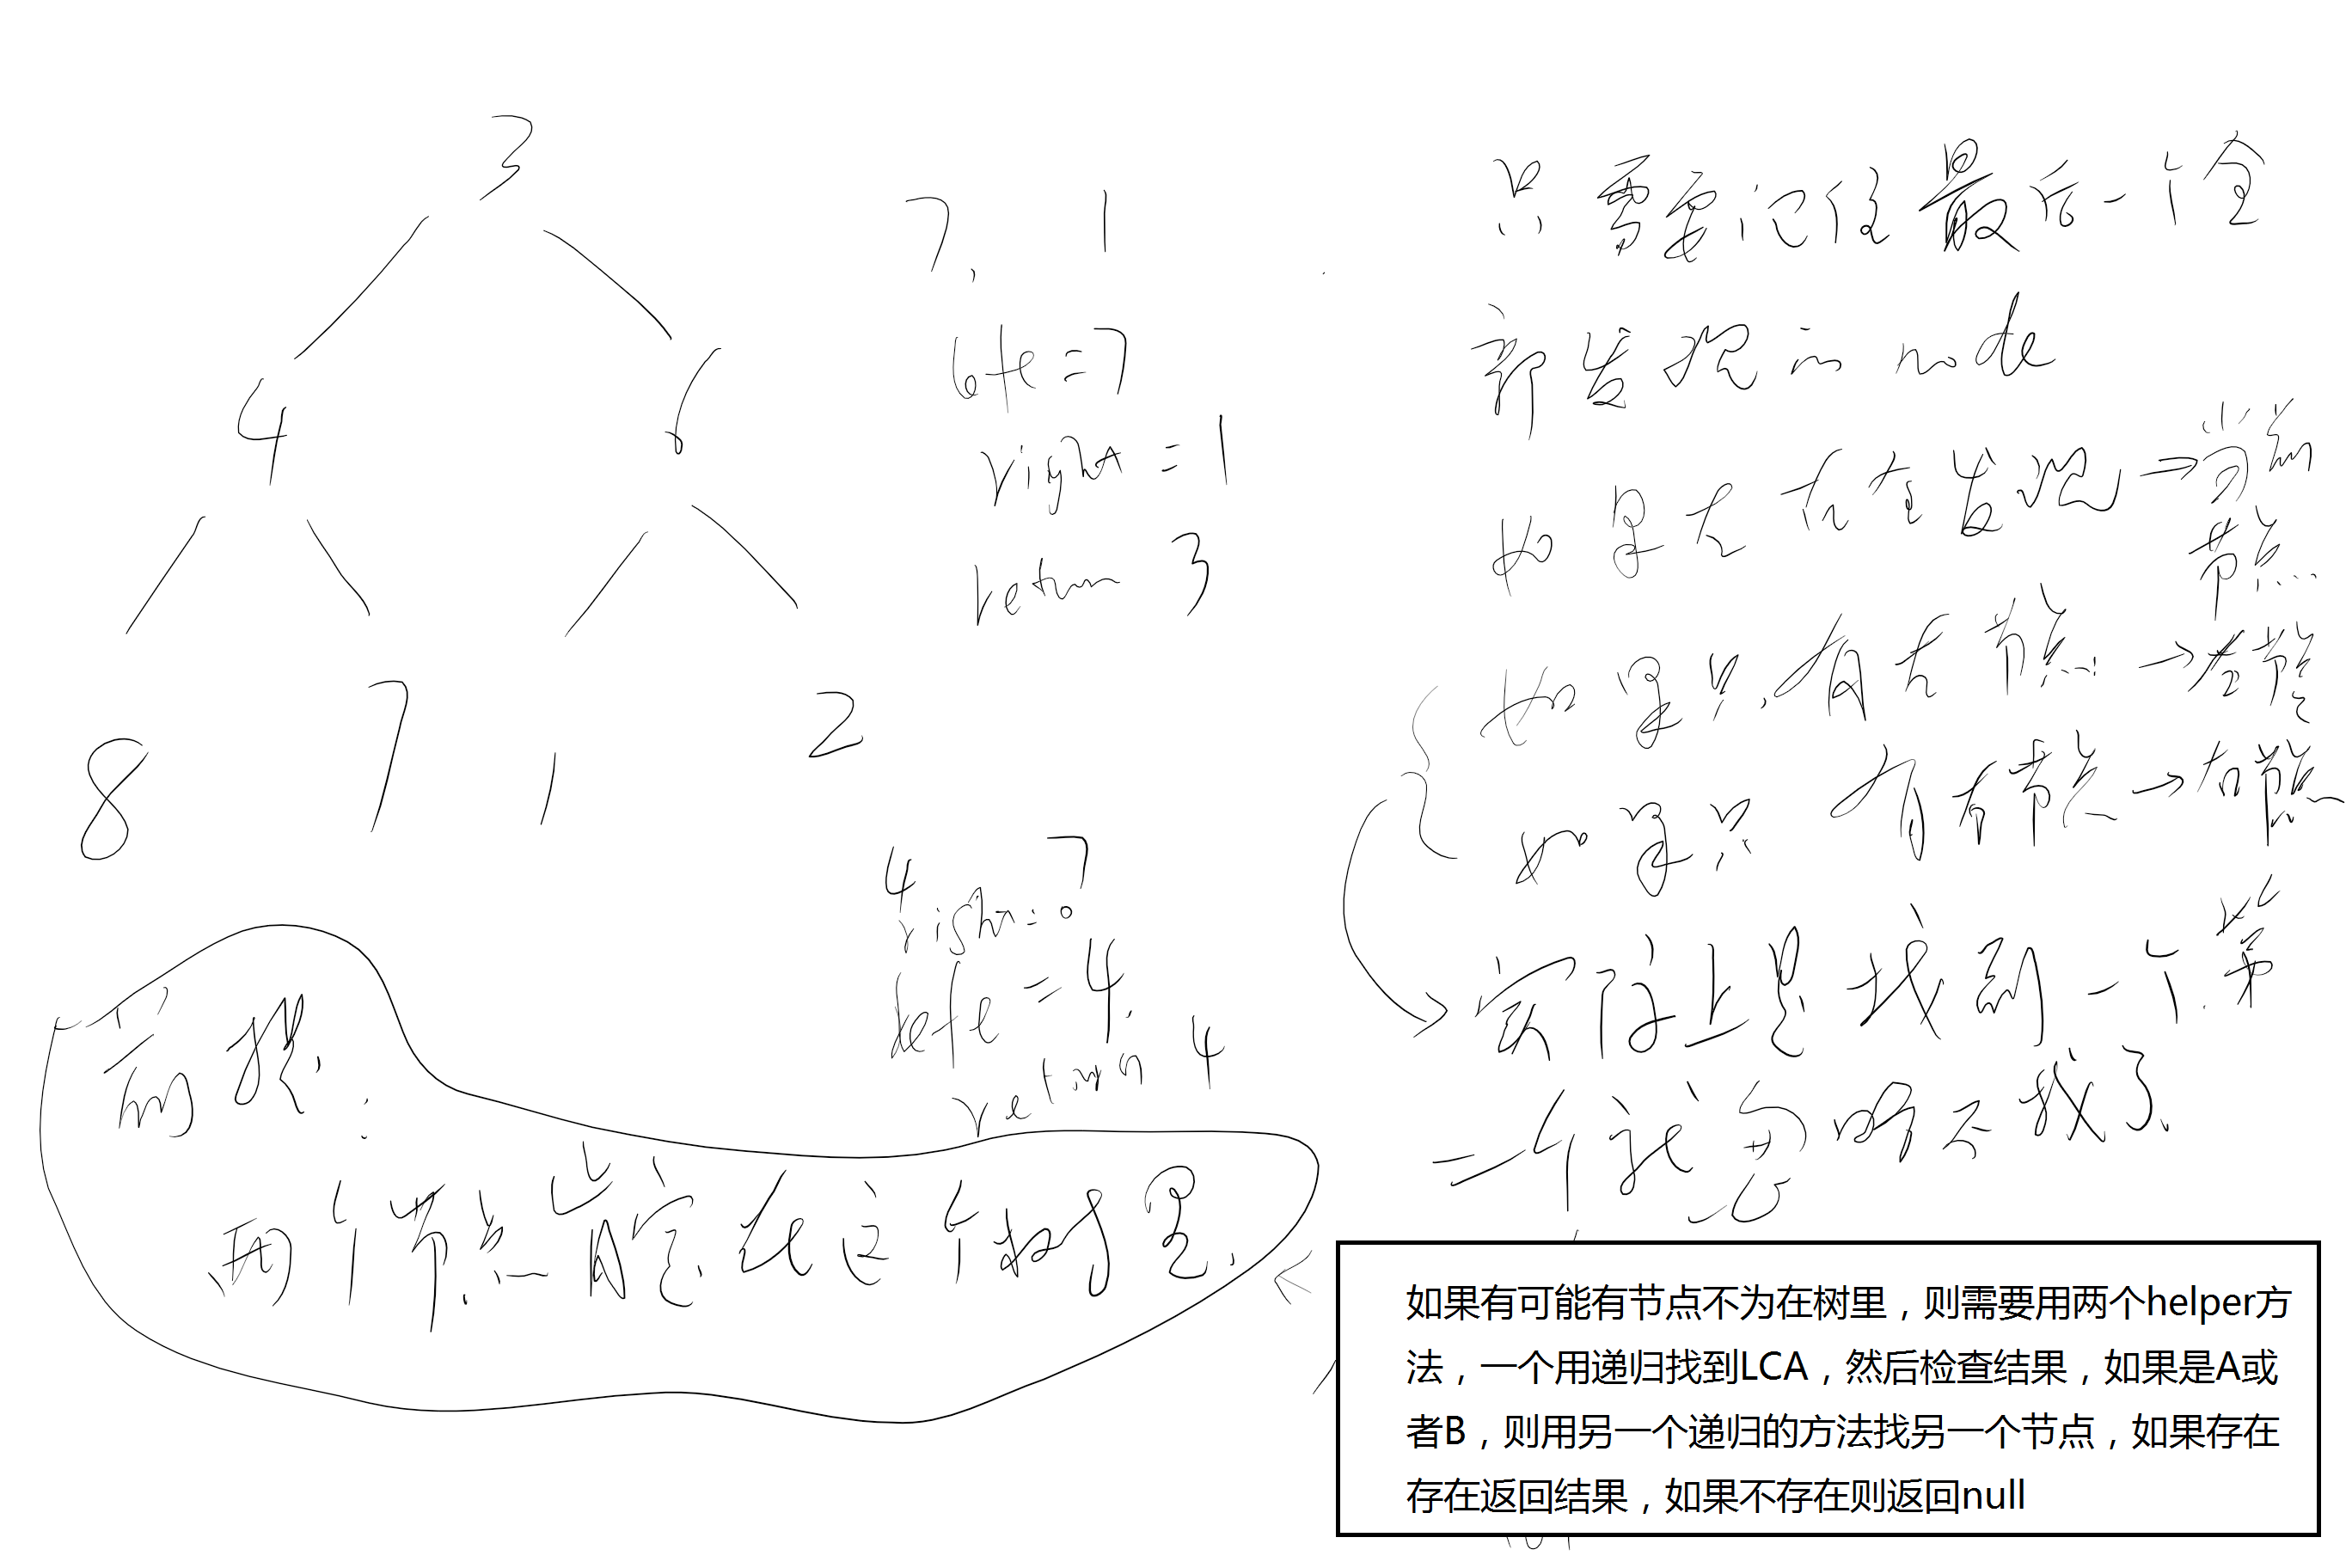 3
4 6
8 7 1 2
7, 1
left = 7
right = 1
return 3
4 7
right = 0
left = 4.
return 4
前提:
两个节点肯定在这个树里.
只需要记住最后一个全
部发现的 node
如果左右全发现 → 当前
节点
如果只有左节点 → 左节点
如果只有右节点 → 右节点
实际上是找到一个,第
二个就忽略不找了.
如果有可能有节点不为在树里，则需要用两个helper方
法，一个用递归找到LCA，然后检查结果，如果是A或
者B，则用另一个递归的方法找另一个节点，如果存在
存在返回结果，如果不存在则返回null